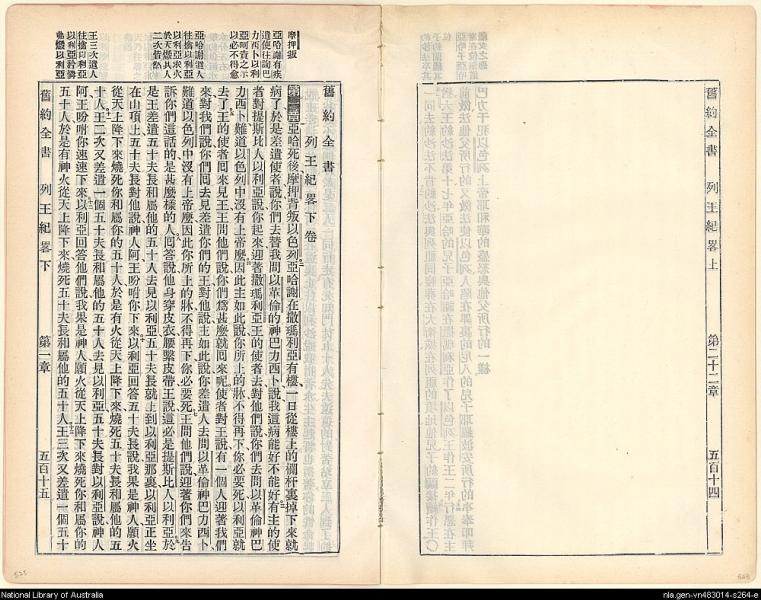 舊約全書 列王紀畧上 第二十二章 五百十四
巴力干犯以色列上帝耶和華的盛怒與他父所行的一樣
舊約全書
列王紀畧下卷
第一章亞哈死後摩押背叛以色列亞哈謝在撒瑪利亞有樓一日從樓上的欄杆裏掉下來就
病了於是差遣使者說你們去替我問以革倫的神巴力西卜說我這病能好不能好有主的使
者對提斯比人以利亞說你起來迎著撒瑪利亞王的使者去對他們說你們去問以革倫神巴
力西卜難道以色列中沒有上帝麼因此主如此說你所上的牀不得再下你必要死以利亞就
去了王的使者囘來見王王問他們說你們爲甚麼就囘來呢使者對王說有一個人迎著我們
來對我們說你們囘去見差遣你們的王對他說主如此說你差遣人去問以革倫神巴力西卜
難道以色列中沒有上帝麼因此你所上的牀不得再下你必要死王問他們說迎著你們來告
訴你們這話的是甚麼樣的人囘答說他身穿皮衣腰繫皮帶王說這必是提斯比人以利亞於
是王差遣五十夫長和屬他的五十人去見以利亞五十夫長就上到以利亞那裏以利亞正坐
在山頂上五十夫長對他說神人阿王吩咐你下來以利亞囘答五十夫長說我果是神人願火
從天上降下來燒死你和屬你的五十人於是有火從天上降下來燒死五十夫長和屬他的五
十人王二次又差遣一個五十夫長和屬他的五十人去見以利亞五十夫長對以利亞說神人
阿王吩咐你速速下來以利亞囘答他們說我果是神人願火從天上降下來燒死你和屬你的
五十人於是有神火從天上降下來燒死五十夫長和屬他的五十人王三次又差遣一個五十
舊約全書 列王紀畧下 第一章 五百十五
摩押叛
亞哈謝有疾
遣使往詢巴
力西卜以利
亞呵責之示
以必不得愈
亞哈謝遣人
往擒以利亞
以利亞求火
於天燬其人
二次皆然
王三次遣人
往擒以利亞
National Library of Australia
nla.gen-vn483014-s264-e